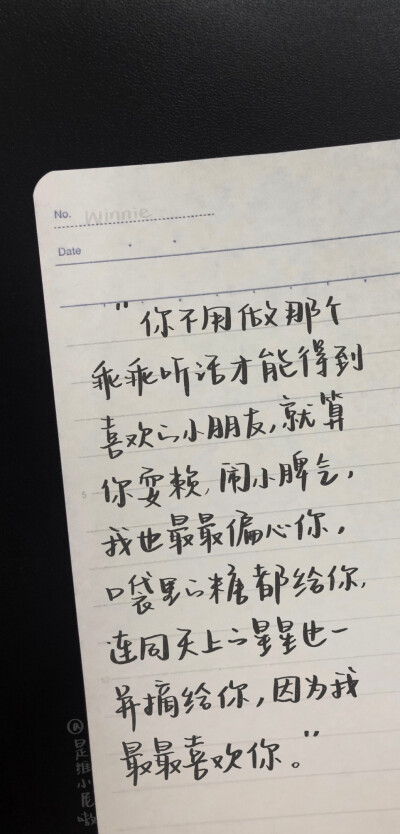 No. Winnie
Date
"你不用做那个
乖乖听话才能得到
喜欢的小朋友,就算
你耍赖,闹小脾气,
我也最最偏心你,
口袋里的糖都给你,
连同天上的星星也一
并摘给你,因为我
最最喜欢你。"